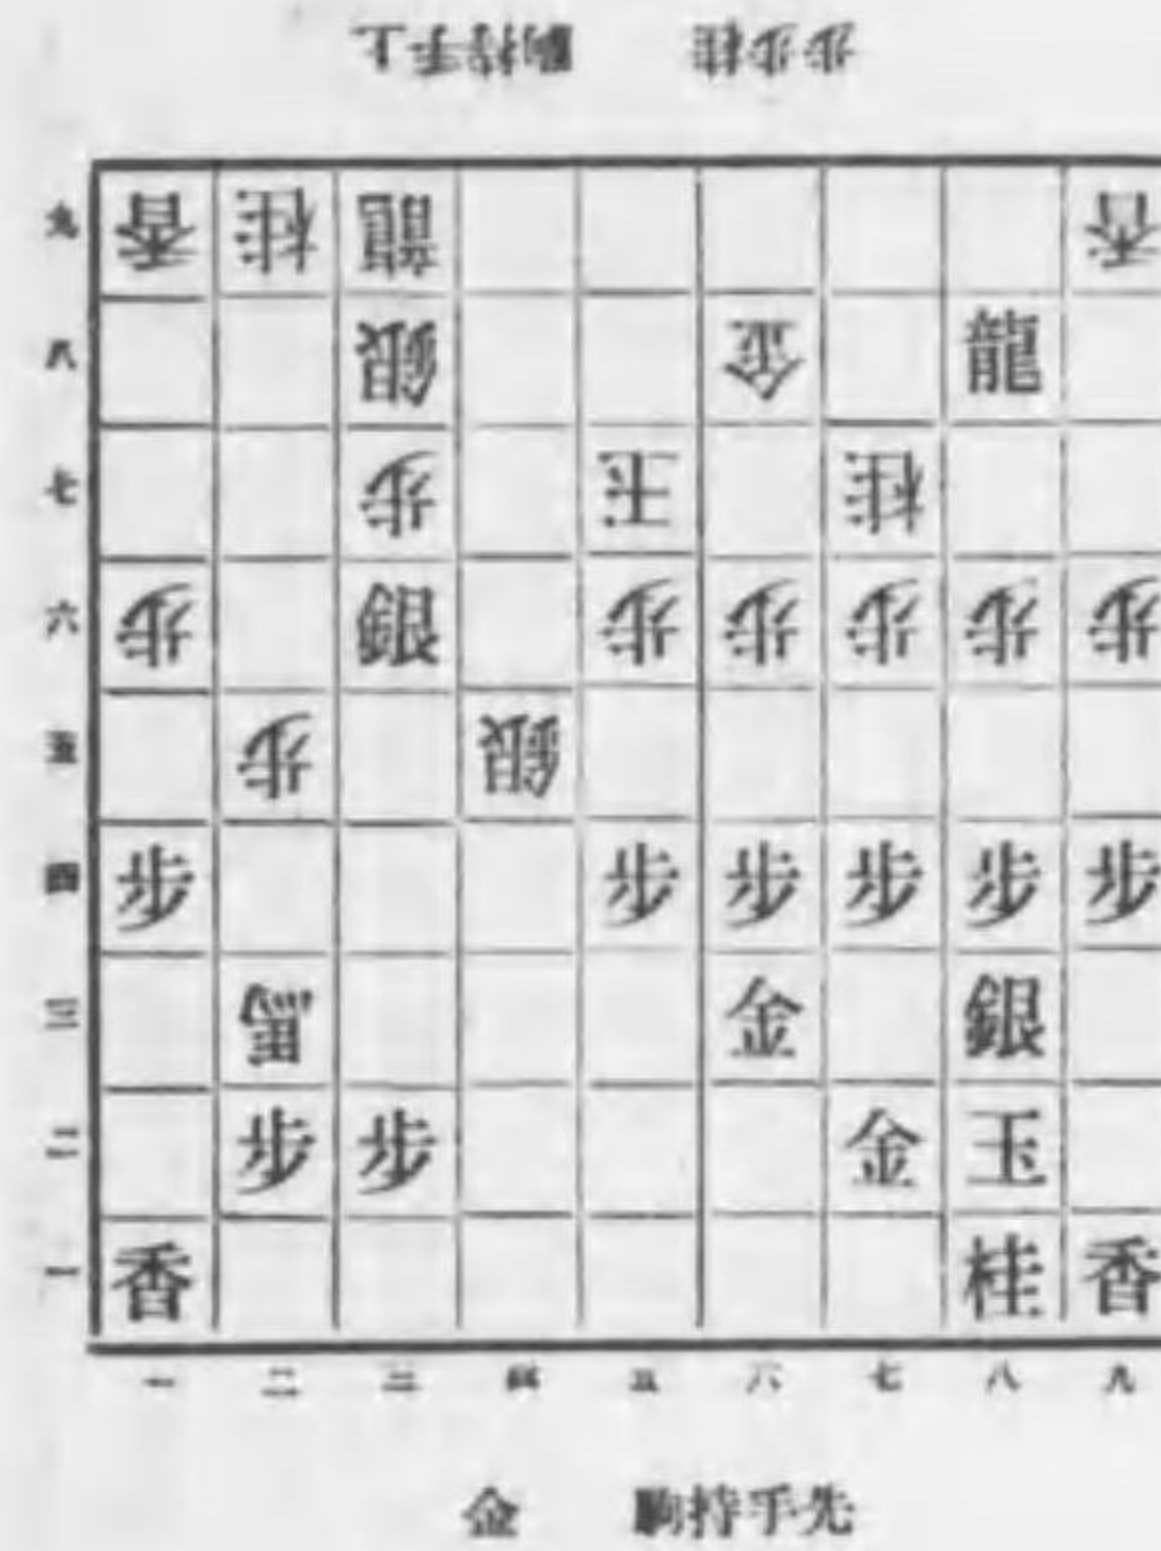 上手持駒　桂歩歩
九 香 桂 龍 香
八 銀 金 龍
七 歩 玉 桂
六 歩 銀 歩 歩 歩 歩 歩
五 歩 銀
四 歩 歩 歩 歩 歩 歩
三 馬 金 銀
二 歩 歩 金 玉
一 香 桂 香
一 二 三 四 五 六 七 八 九
先手持駒　金